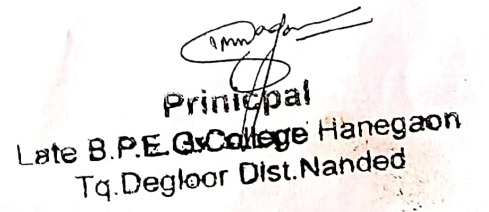 Prinicpal
Late B.P.E. College Hanegaon
Tq.Degloor Dist.Nanded